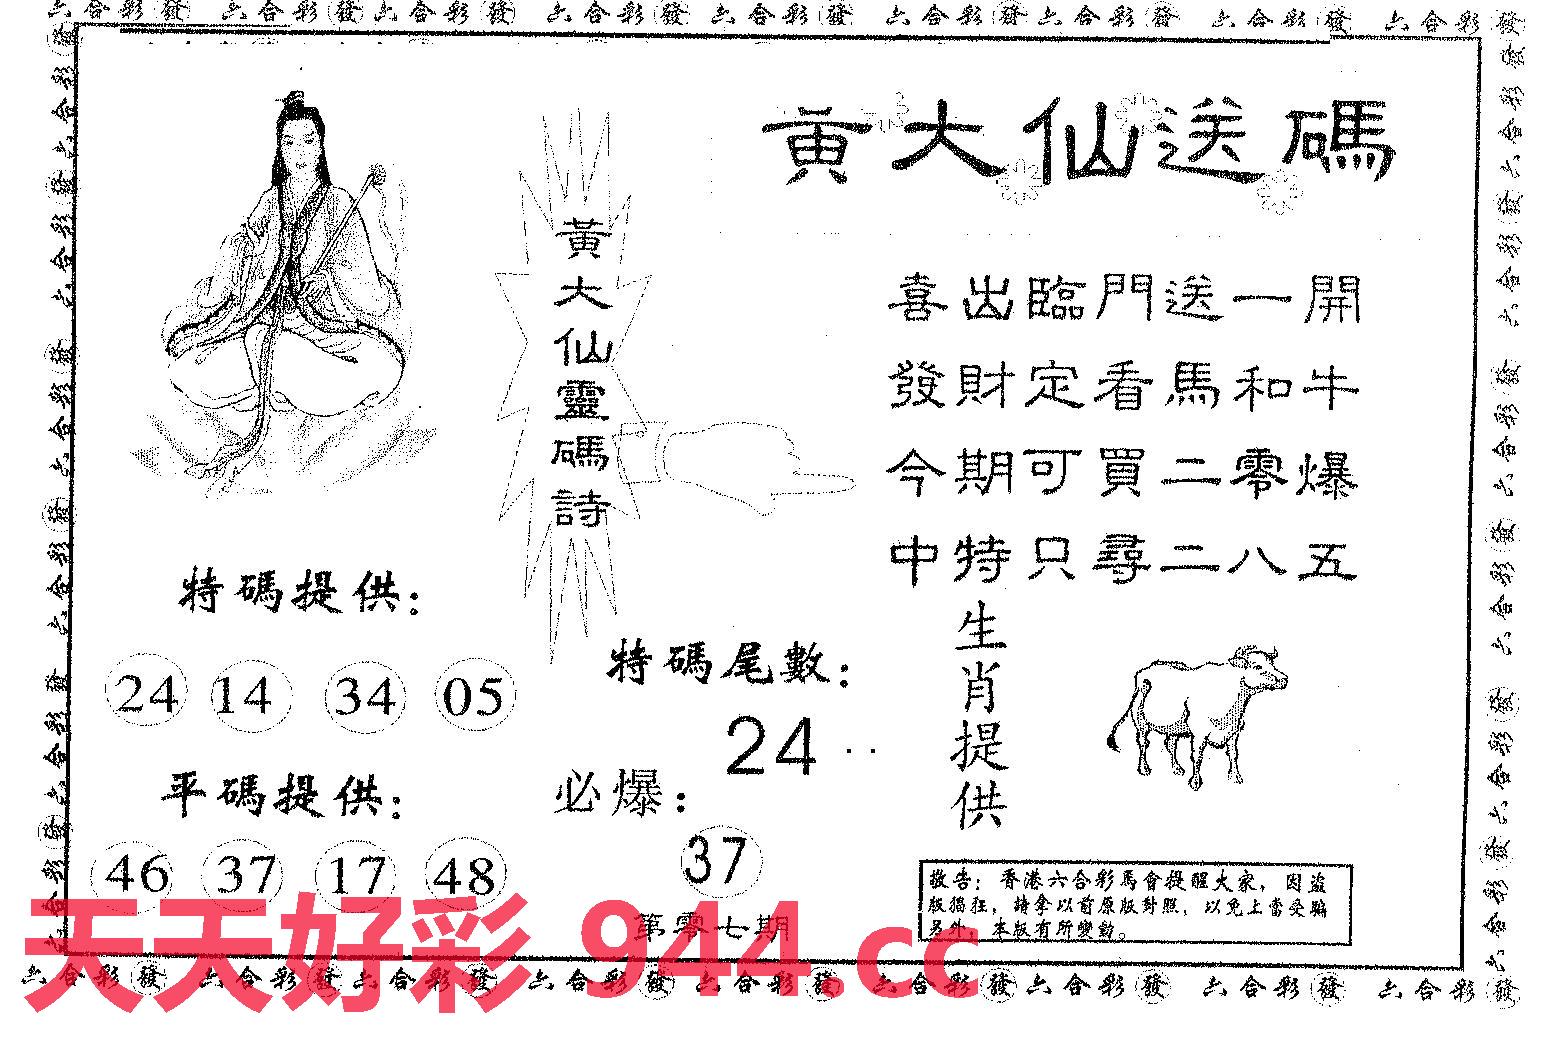 六合彩發 六合彩發 六合彩發 六合彩發 六合彩發 六合彩發 六合彩發 六合彩發 六合彩發
黃大仙送碼
黃大仙靈碼詩
喜出臨門送一開
發財定看馬和牛
今期可買二零爆
中特只尋二八五
特碼提供：
24 14 34 05
平碼提供：
46 37 17 48
特碼尾數：
24
必爆：
37
第零七期
生肖提供
敬告：香港六合彩馬會提醒大家，因盜
版猖狂，請拿以前原版對照，以免上當受騙
另外，本版有所變動。
天天好彩 944.cc
六合彩發 六合彩發 六合彩發 六合彩發 六合彩發 六合彩發 六合彩發 六合彩發 六合彩發